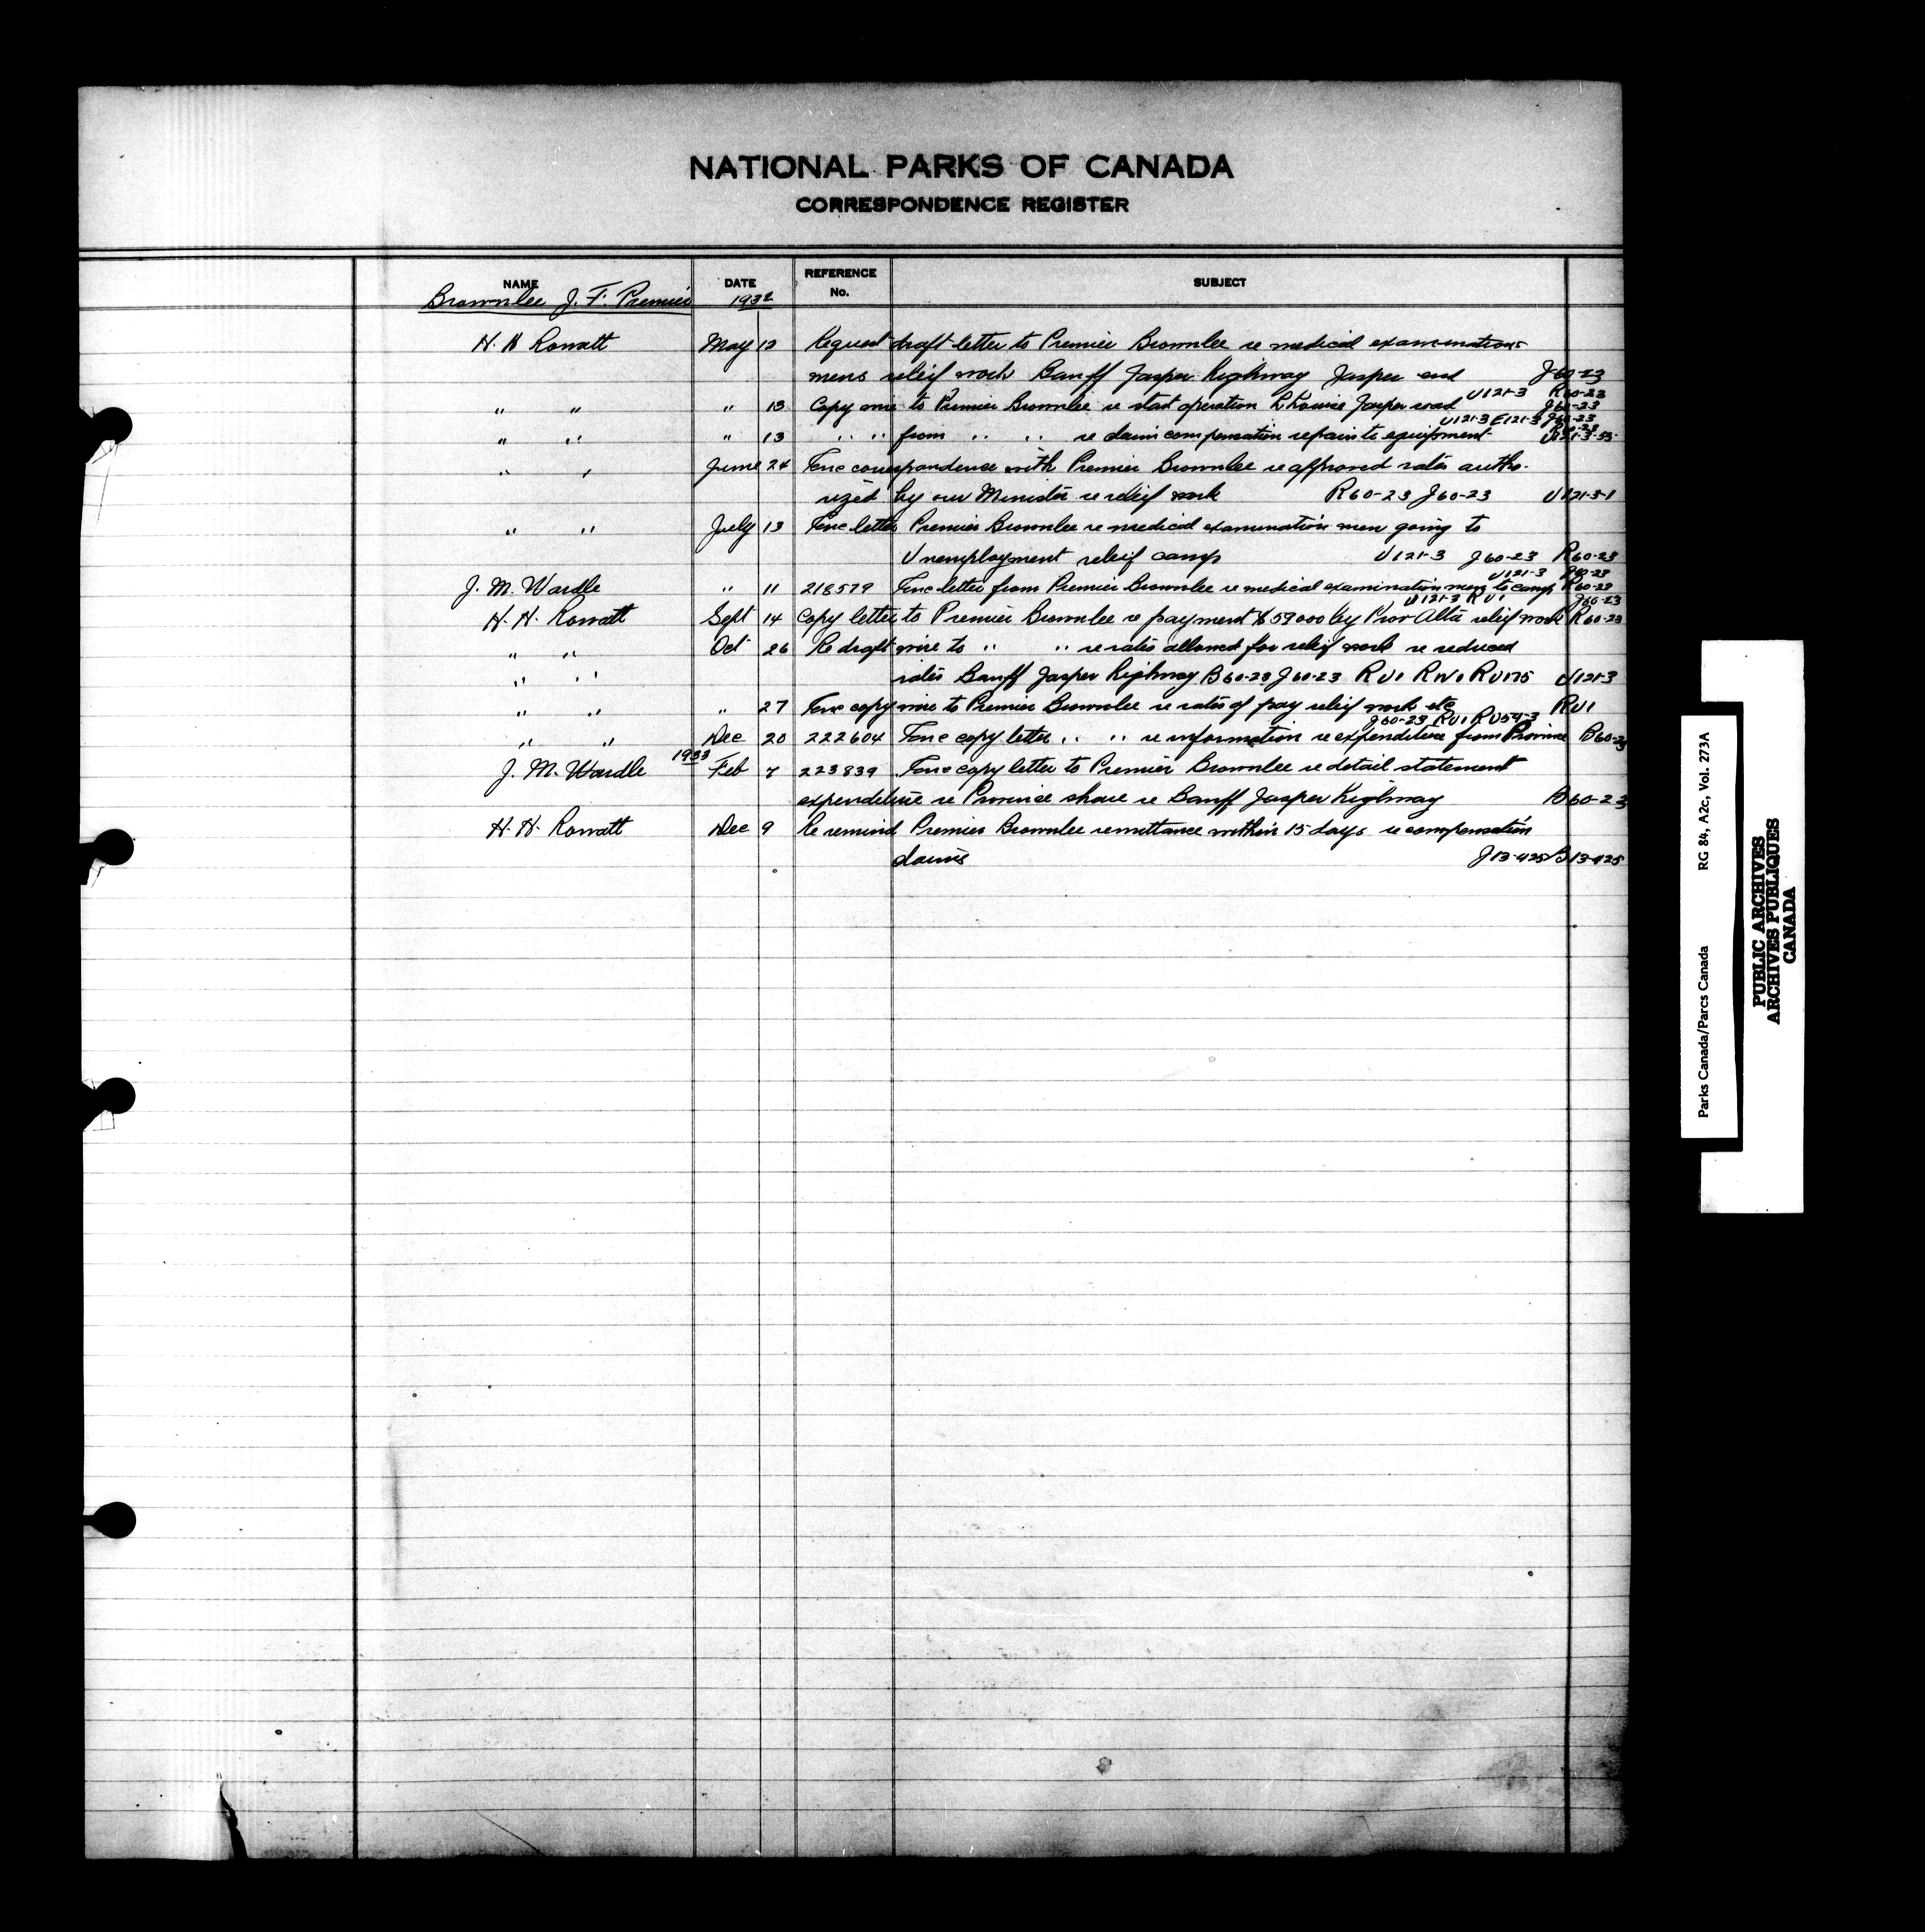 NATIONAL PARKS OF CANADA
CORRESPONDENCE REGISTER
NAME DATE REFERENCE No. SUBJECT
Brownlee J. F. Premier 1932
H. H Rowatt May 12 Request draft letter to Premier Brownlee re medical examinations
mens relief work Banff Jasper Highway Jasper end J60-23
U121-3 R60-23
" " " 13 Copy wire to Premier Brownlee re start operation L Louise Jasper road J60-23
U121-3 E121-3 J60-23
R60-23
" " " 13 " " from " " re claim compensation repairs to equipment U121-3-53
" " June 24 Fenc correspondence with Premier Brownlee re approved rates autho-
rized by our Minister re relief work R60-23 J60-23 U121-3-1
" " July 13 Fenc letter Premier Brownlee re medical examination men going to
Unemployment relief camps U121-3 J60-23 R60-23
U121-3 J60-23
J. M. Wardle " 11 218579 Fenc letter from Premier Brownlee re medical examination mens to camps R60-23
U121-3 RU1 J60-23
H. H. Rowatt Sept 14 Copy letter to Premier Brownlee re payment $59000 by Prov Alta relief work R60-23
" " Oct 26 Re draft wire to " " re rates allowed for relief work re reduced
" " rates Banff Jasper Highway B60-23 J60-23 RU1 RW1 RU175 U121-3
" " " 27 Fenc copy wire to Premier Brownlee re rates of pay relief work etc RU1
J60-23 RU1 RU54-3
" " Dec 20 222604 Fenc copy letter " " re information re expenditure from Province B60-23
1933
J. M. Wardle Feb 7 223839 Fenc copy letter to Premier Brownlee re detail statement
expenditure re Province share re Banff Jasper Highway B60-23
H. H. Rowatt Dec 9 Re remind Premier Brownlee remittance within 15 days re compensation
claims J13-425 B13-425
Parks Canada/Parcs Canada RG 84, A2c, Vol. 273A
PUBLIC ARCHIVES
ARCHIVES PUBLIQUES
CANADA